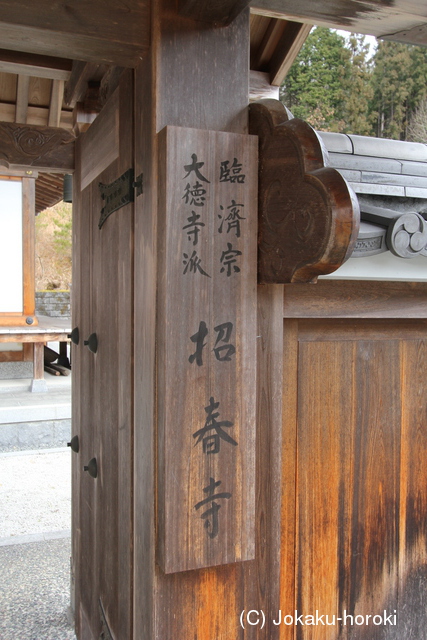 臨濟宗
大徳寺派
招春寺
(C) Jokaku-horoki